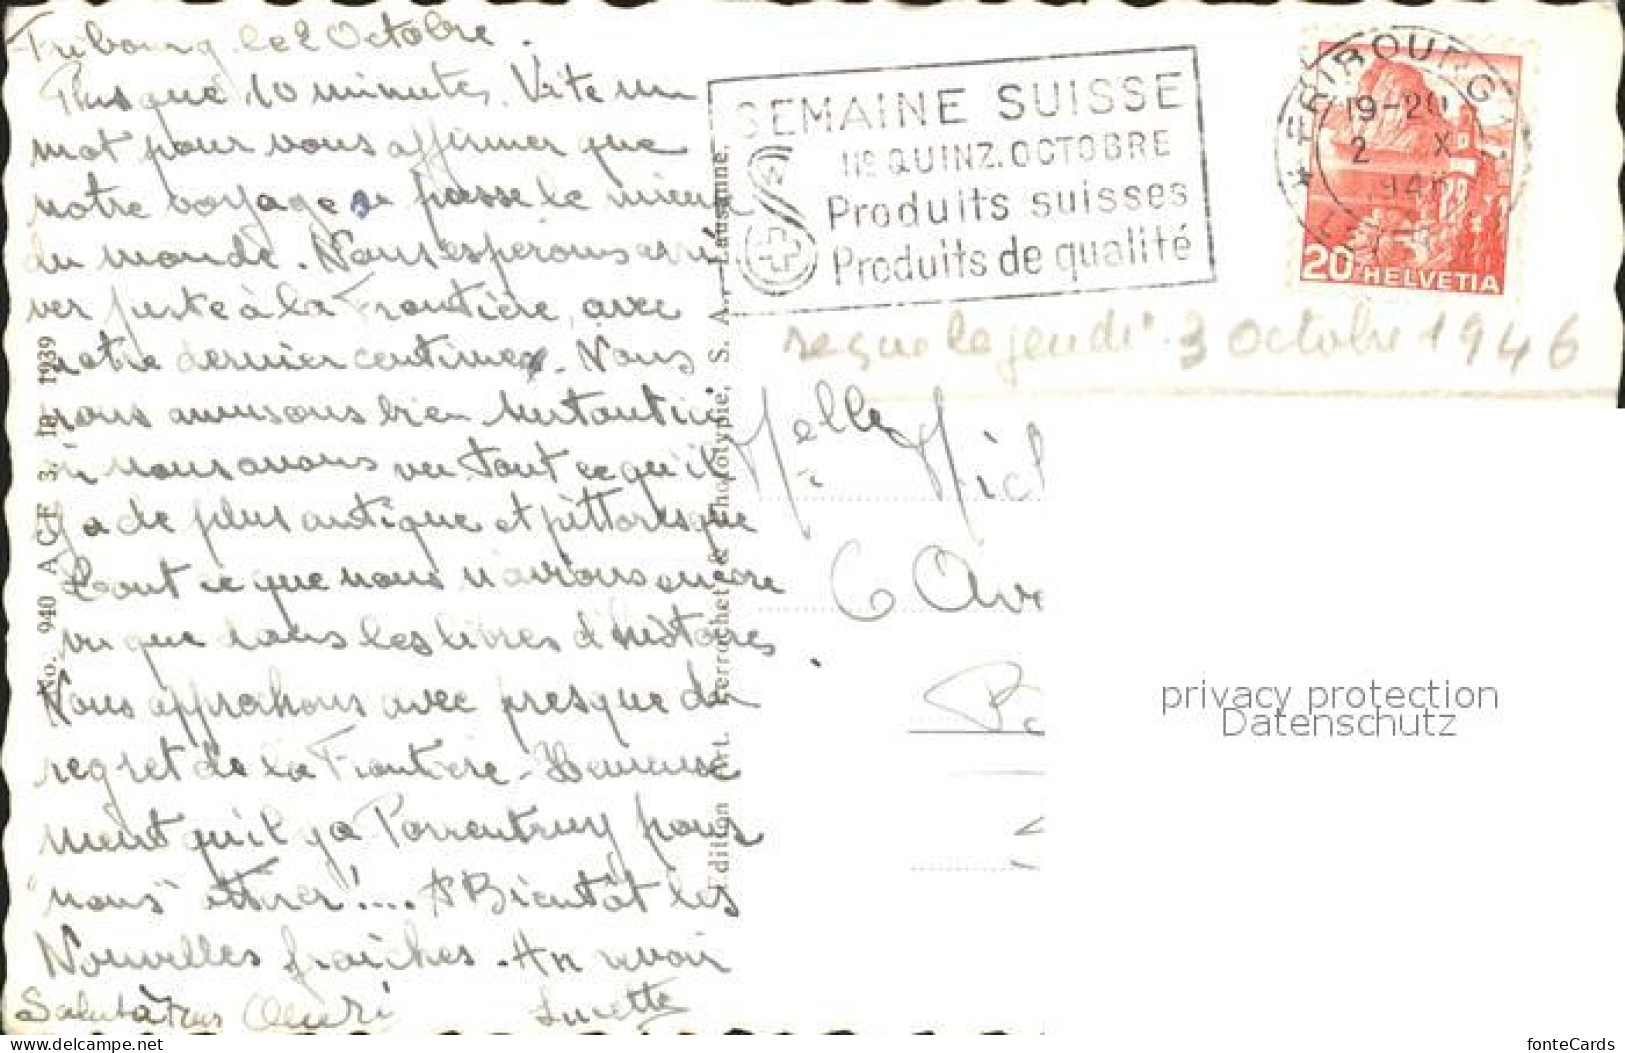 Fribourg le 2 Octobre.
Plus que 10 minutes. Vite un
mot pour vous affirmer que
notre voyage se passe le mieux
du monde. Nous esperons arri
ver juste à la Frontière avec
notre dernier centime. Nous
nous amusons bien surtout ici
où nous avons vu tout ce qu'il
y a de plus antique et pittoresque
tout ce que nous n'avions encore
vu que dans les livres d'histoires
Nous approchons avec presque du
regret de la Frontière. Heureuse
ment qu'il y a Porrentruy pour
nous "attirer"!.... A Bientôt les
Nouvelles fraîches. Au revoir
Salut à tous Henri Lucette
No. 940 ACF 3. 10. 1939
Edition Art. Perrochet & Phototypie, S. A. - Lausanne.
SEMAINE SUISSE
IIe QUINZ. OCTOBRE
Produits suisses
Produits de qualité
FRIBOURG 1
19-20
2 X
1946
20 HELVETIA
reçue le jeudi 3 Octobre 1946
Melle Mich
6 Ave
privacy protection
Datenschutz
www.delcampe.net
fonteCards